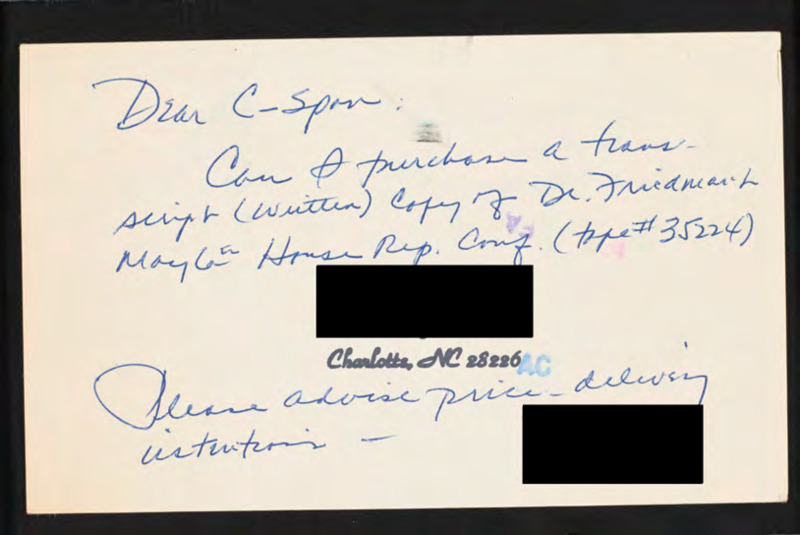 Dear C-Span:
Can I purchase a trans-
script (written) copy of Dr. Friedman's
May 6th House Rep. Conf. (tape# 35224)
Charlotte, NC 28226
AC
Please advise price - delivery